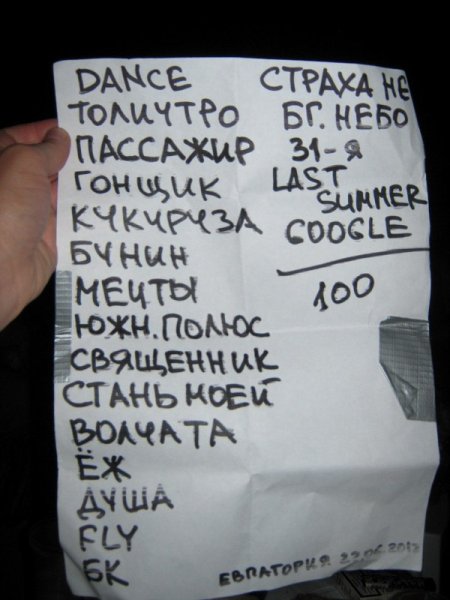 DANCE
ТОЛИЧТРО
ПАССАЖИР
ГОНЩИК
КУКУРУЗА
БУНИН
МЕЧТЫ
ЮЖН. ПОЛЮС
СВЯЩЕННИК
СТАНЬ МОЕЙ
ВОЛЧАТА
ЁЖ
ДУША
FLY
БК
СТРАХА НЕ
БГ. НЕБО
31-Я
LAST
SUMMER
GOOGLE
100
ЕВПАТОРИЯ 22.06.2012